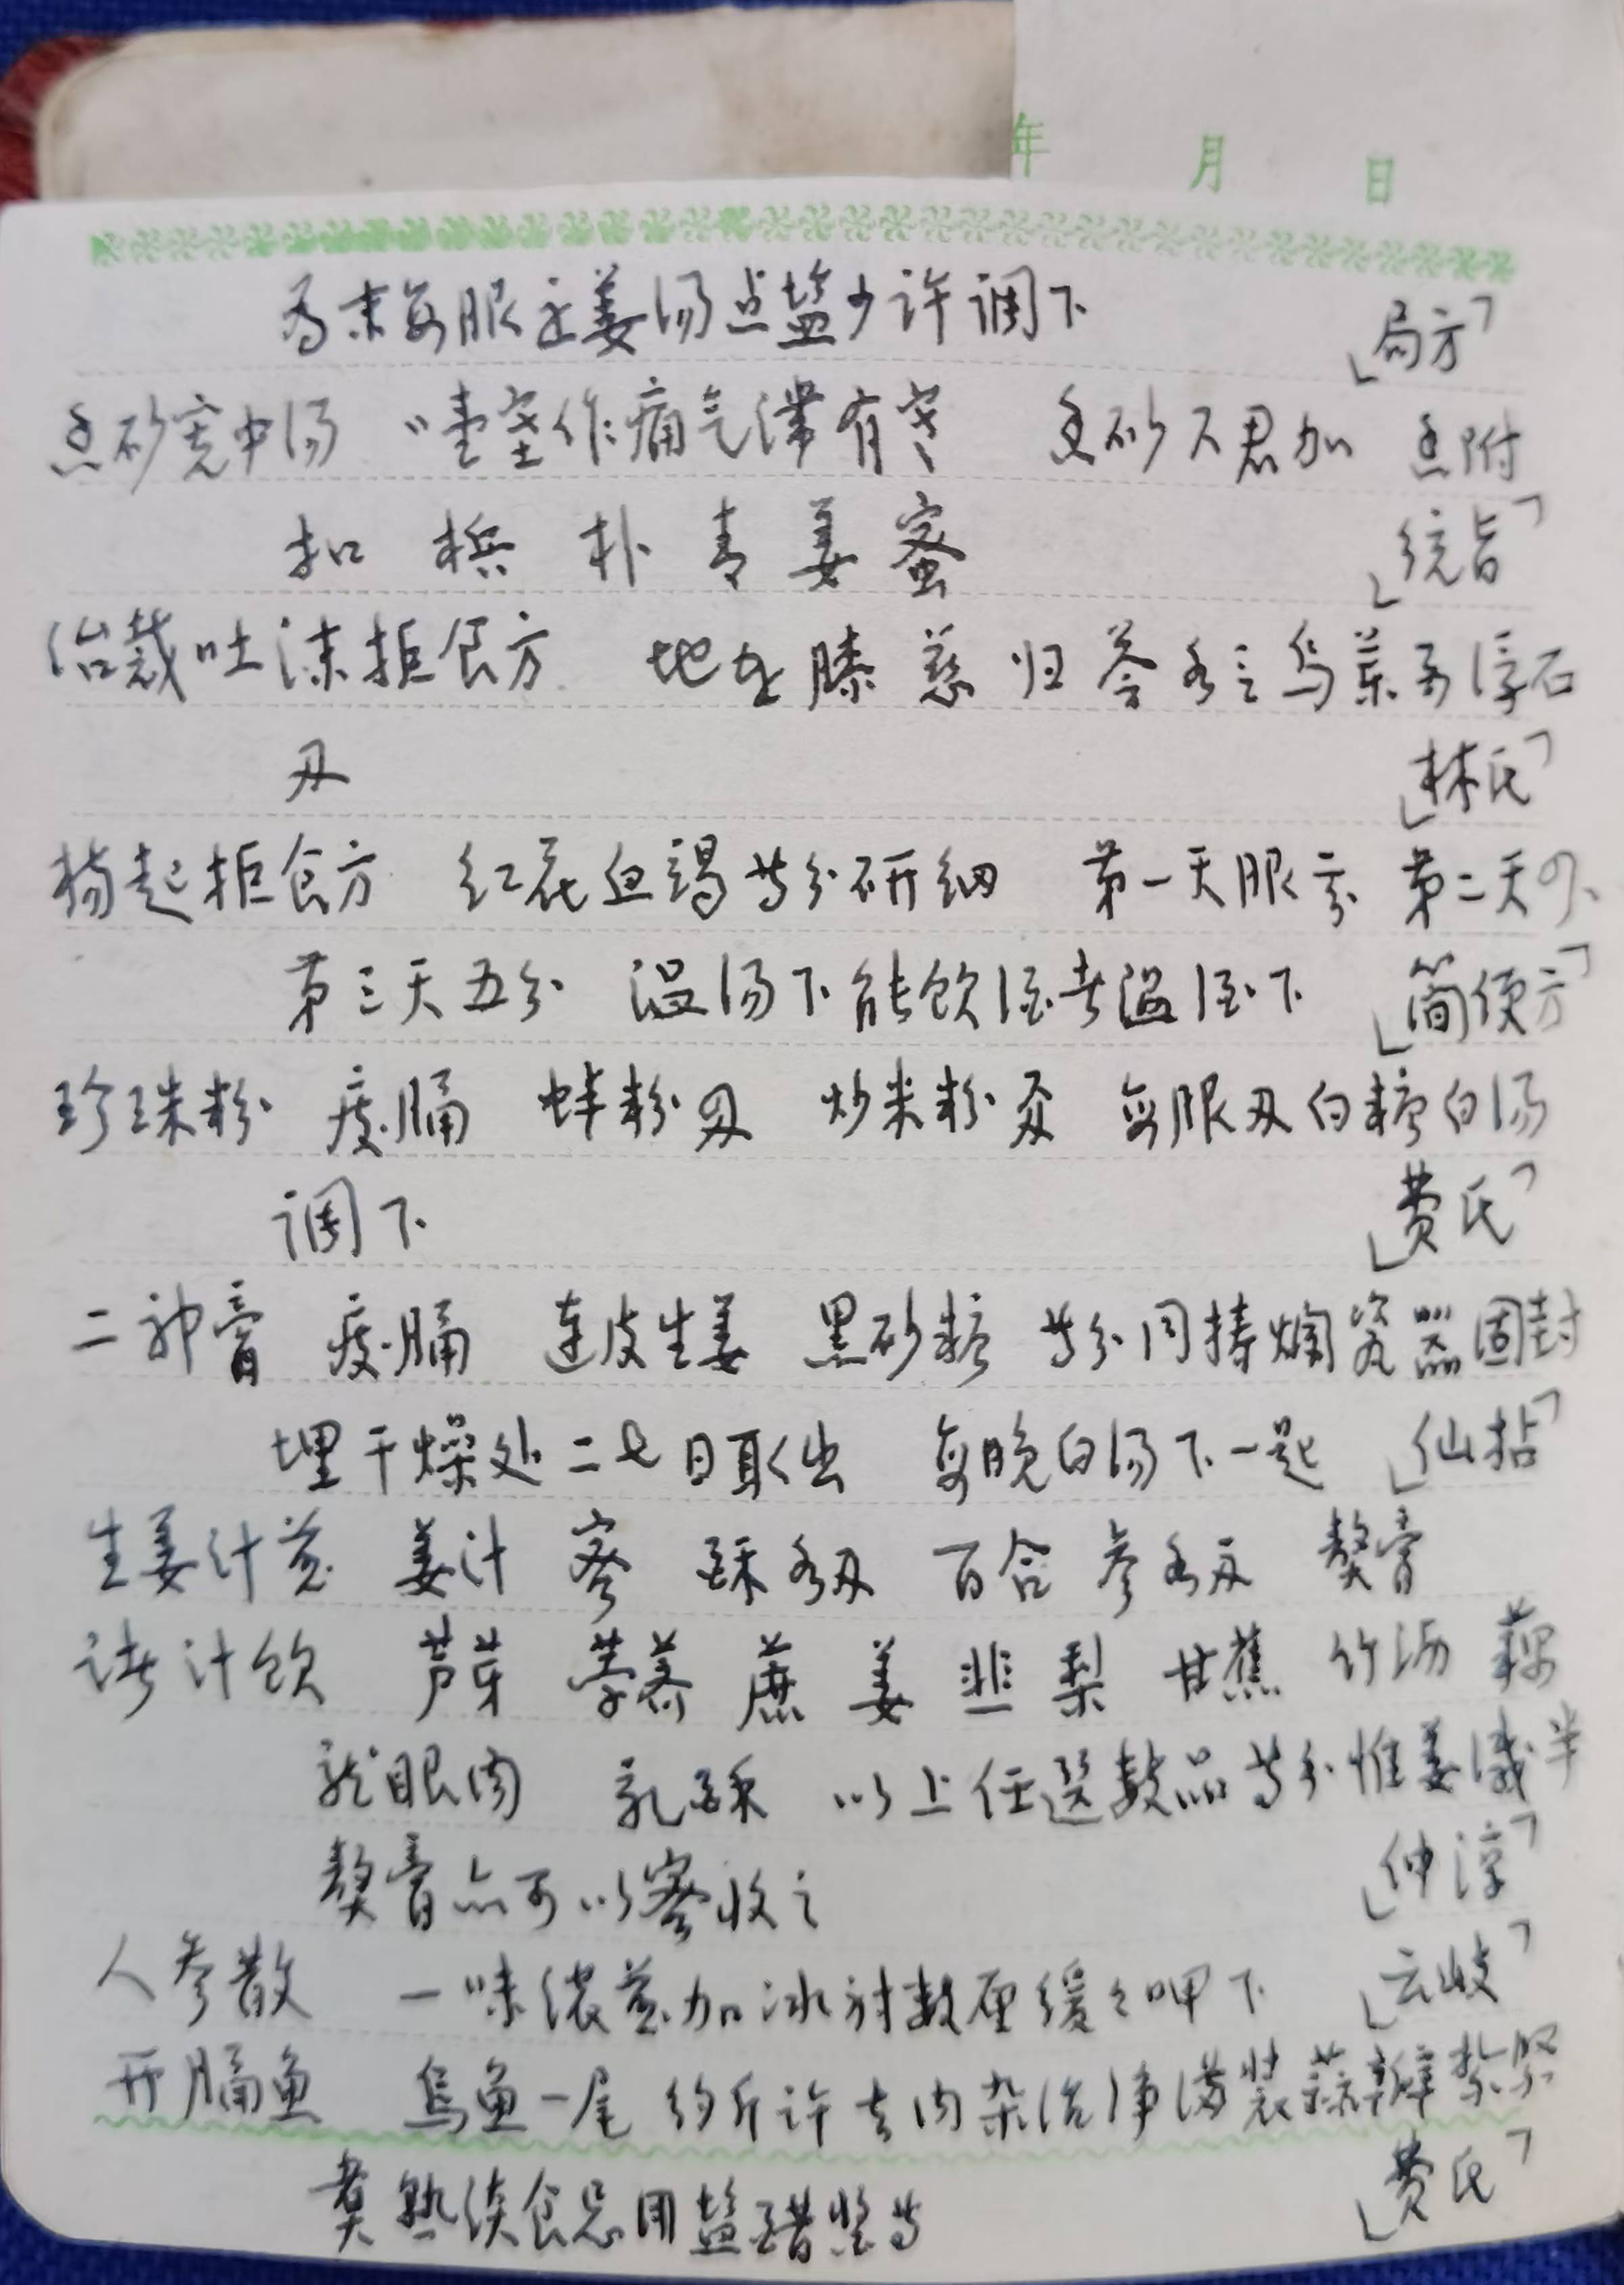 年 月 日
为末每服 姜汤点盐少许调下 「局方」
香砂宽中汤 噎塞作痛气滞有寒 香砂六君加 香附
扣 槟 朴 青 姜 蜜 「统旨」
治裁吐沫拒食方 地 膝 慈 归 苓 乌药 浮石
「林氏」
杨起拒食方 红花血竭等分研细 第一天服 第二天
第三天五分 温汤下能饮酒者温酒下 「简便方」
珍珠粉 痰膈 蚌粉 炒米粉 每服 白糖白汤
调下 「费氏」
二神膏 痰膈 连皮生姜 黑砂糖 等分同捣烂瓷器固封
埋干燥处二七日取出 每晚白汤下一匙 「仙拈」
生姜汁煎 姜汁 蜜 酥各 百合 参各 熬膏
诸汁饮 芦芽 荸荠 蔗 姜 韭 梨 甘蕉 竹沥 藕
龙眼肉 乳酥 以上任选数品等分惟姜减半
熬膏亦可以蜜收之 「仲淳」
人参散 一味浓煎加冰射数厘缓々呷下 「云岐」
开膈鱼 乌鱼一尾 约斤许去内杂治净满装蒜瓣扎紧
煮熟淡食忌用盐酱等 「费氏」